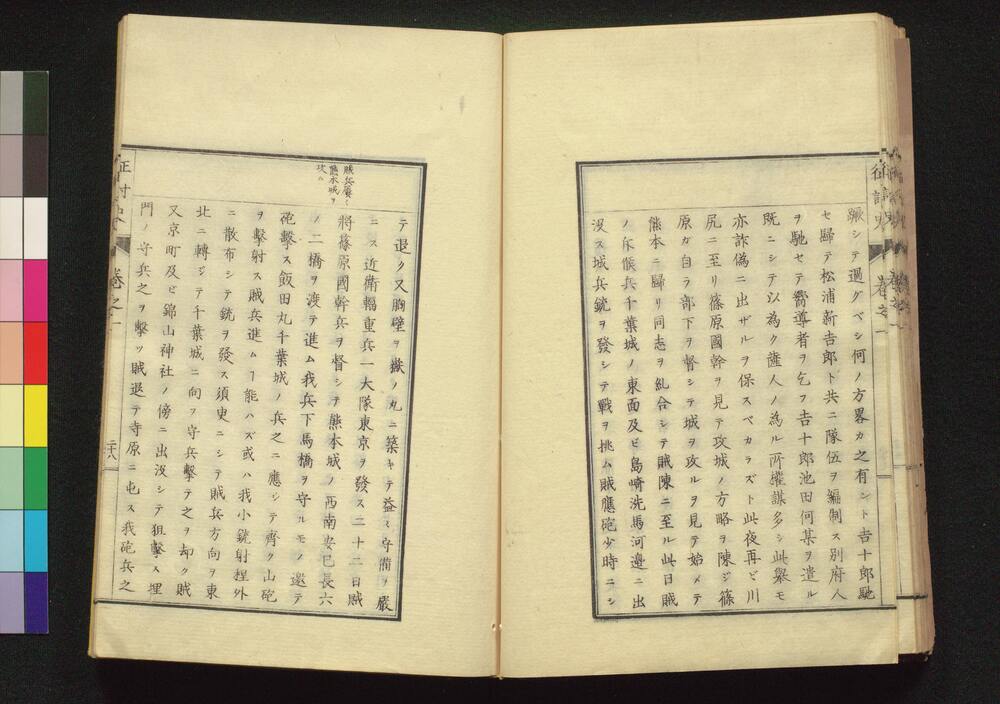 蹶シテ過グベシ何ノ方畧カ之有ント吉十郎馳
セ歸テ松浦新吉郎ト共ニ隊伍ヲ編制ス別府人
ヲ馳セテ嚮導者ヲ乞フ吉十郎池田何某ヲ遣ル
既ニシテ以為ク薩人ノ為ル所權謀多シ此舉モ
亦詐偽ニ出ザルヲ保スベカラズト此夜再ビ川
尻ニ至リ篠原國幹ヲ見テ攻城ノ方略ヲ陳ジ篠
原ガ自ラ部下ヲ督シテ城ヲ攻ルヲ見テ始メテ
熊本ニ歸リ同志ヲ糺合シテ賊陳ニ至ル此日賊
ノ斥候兵千葉城ノ東面及ビ島崎洗馬河邊ニ出
没ス城兵銃ヲ發シテ戰ヲ挑ム賊應砲少時ニシ
征討史
卷之一
賊兵屢々
熊本城ヲ
攻ム
テ退ク又胸壁ヲ嶽ノ丸ニ築キテ益々守備ヲ嚴
ニス近衛輜重兵一大隊東京ヲ發ス二十二日賊
將篠原國幹兵ヲ督シテ熊本城ノ西南安巳長六
ノ二橋ヲ渡テ進ム我兵下馬橋ヲ守ルモノ還テ
砲擊ス飯田丸千葉城ノ兵之ニ應シテ齊ク山砲
ヲ擊射ス賊兵進ムヿ能ハズ或ハ我小銃射程外
ニ散布シテ銃ヲ發ス須臾ニシテ賊兵方向ヲ東
北ニ轉ジテ千葉城ニ向フ守兵擊テ之ヲ却ク賊
又京町及ビ錦山神社ノ傍ニ出没シテ狙擊ス埋
門ノ守兵之ヲ擊ツ賊退テ寺原ニ屯ス我砲兵之
卷之一
二十八